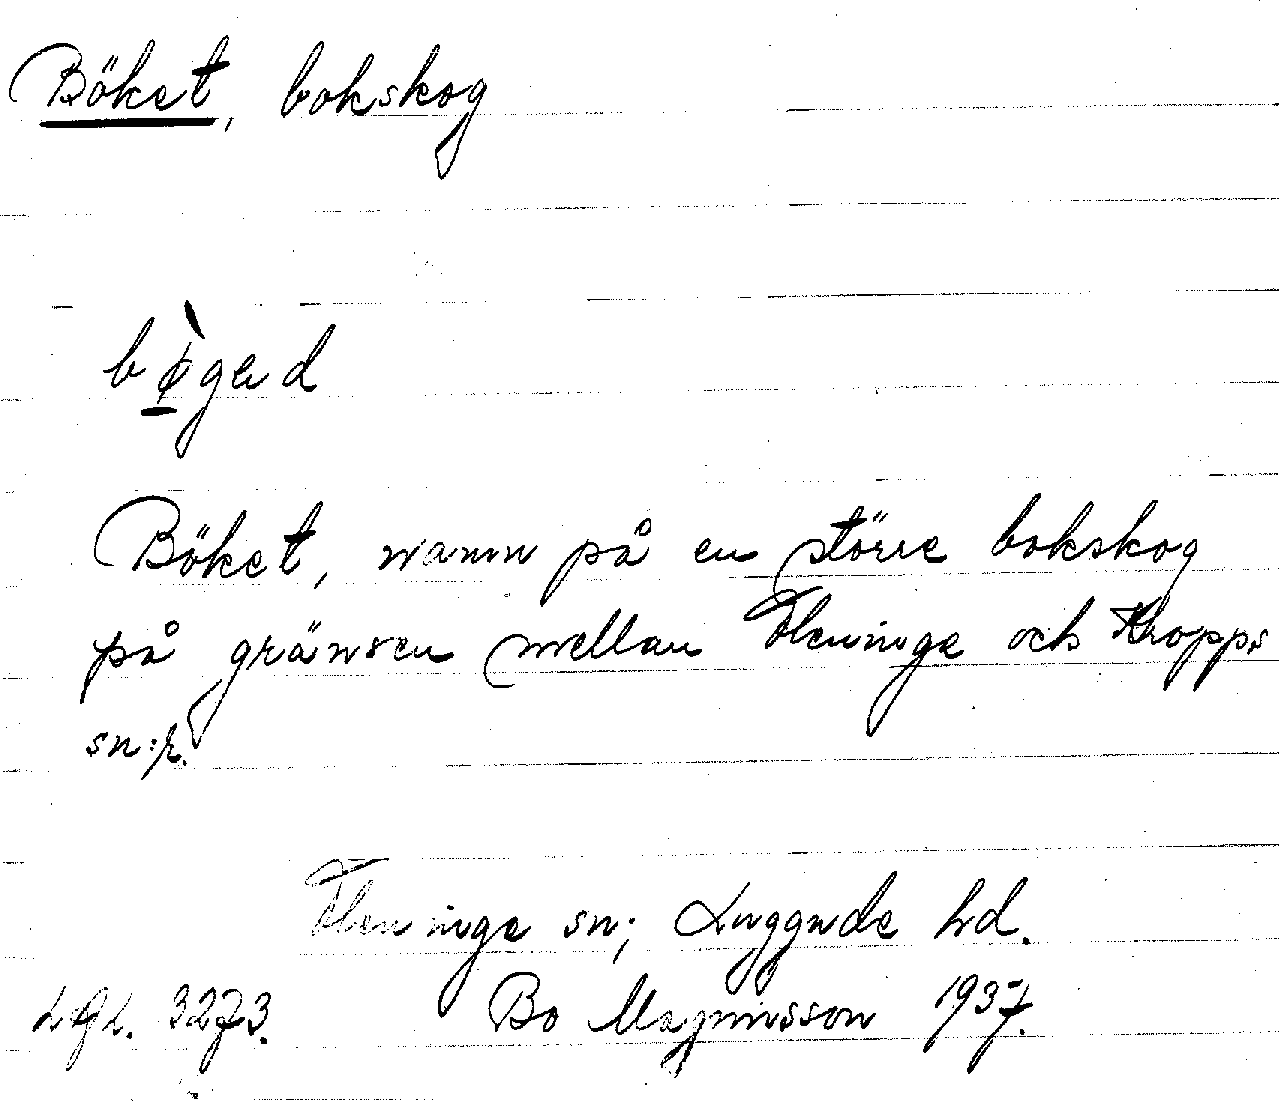 Böket, bokskog
bø̀gəd
Böket, namn på en större bokskog
på gränsen mellan Fleninge och Kropps
sn:r.
Fleninge sn; Luggude hd.
LGL. 3273. Bo Magnusson 1937.